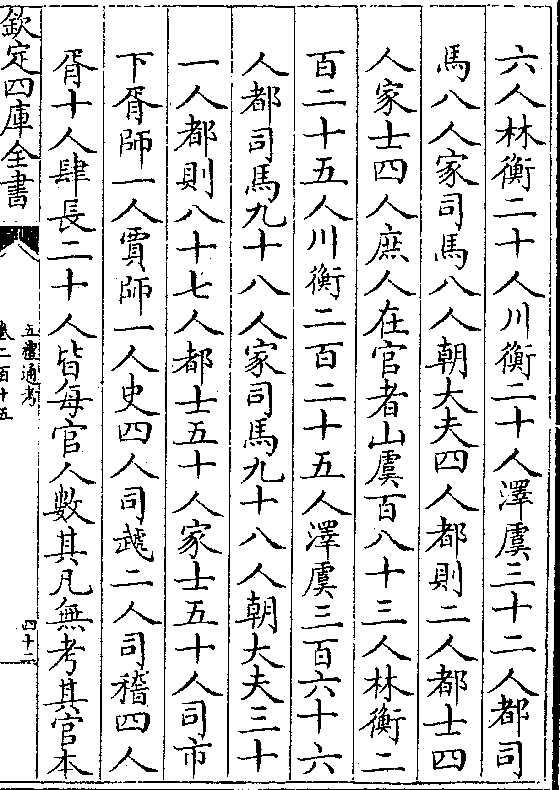 六人林衡二十人川衡二十人澤虞三十二人都司
馬八人家司馬八人朝大夫四人都則二人都士四
人家士四人庶人在官者山虞百八十三人林衡二
百二十五人川衡二百二十五人澤虞三百六十六
人都司馬九十八人家司馬九十八人朝大夫三十
一人都則八十七人都士五十人家士五十人司市
下胥師一人賈師一人史四人司虣二人司稽四人
胥十人肆長二十人皆每官人數其凡無考其官本
欽定四庫全書
五禮通考
卷二百十五
四十二